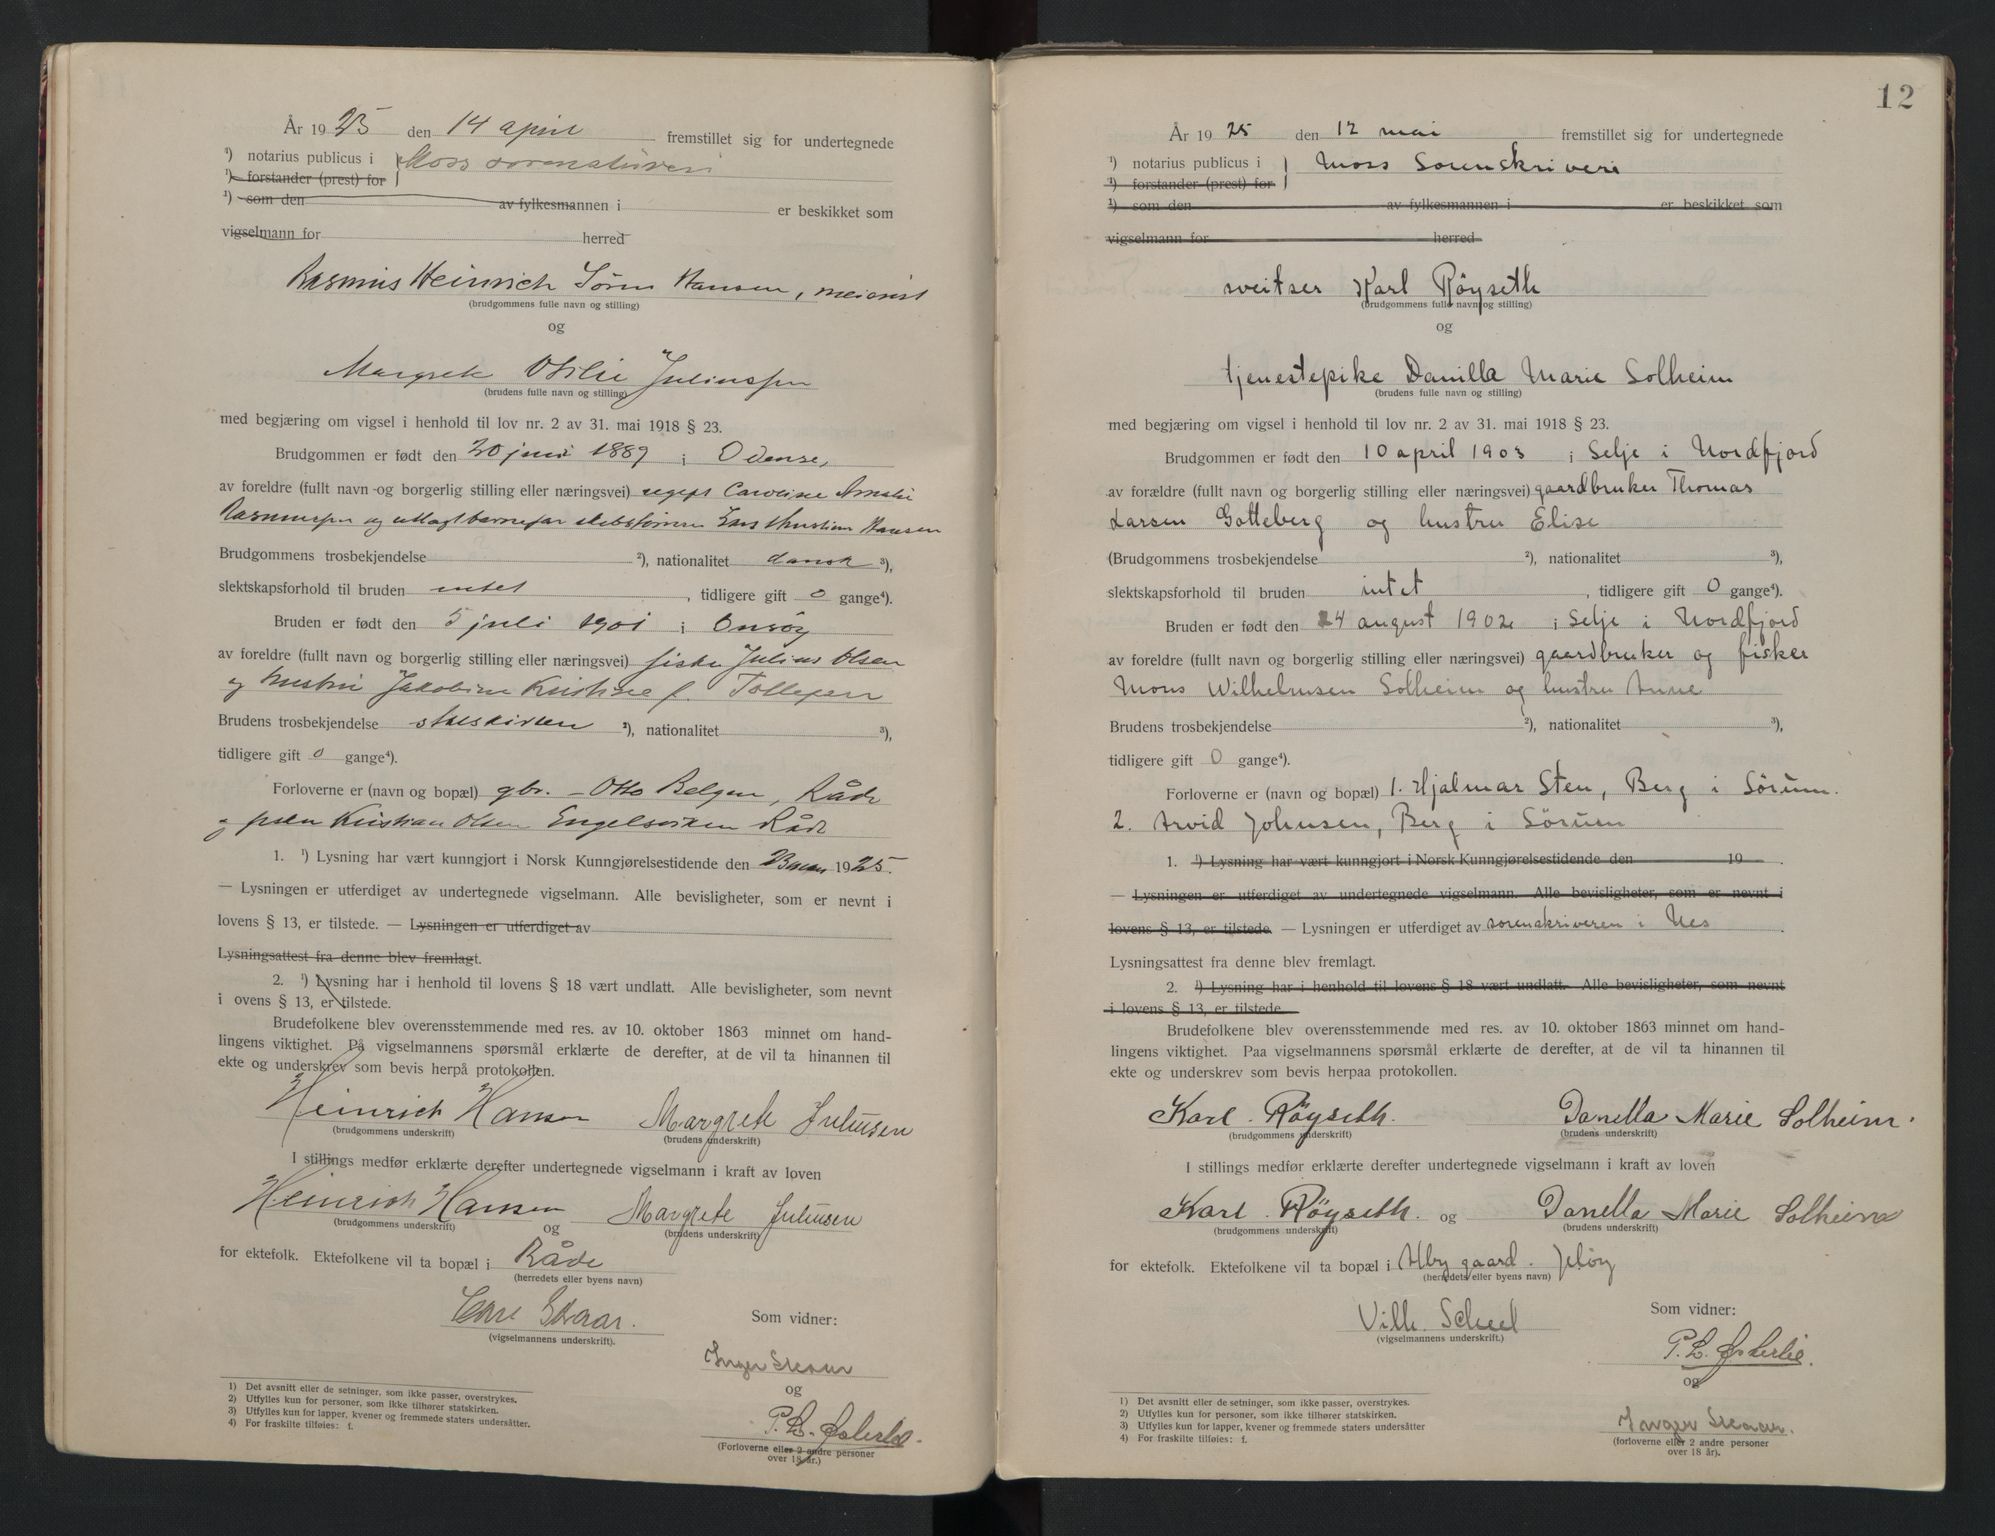 År 1925 den 14 april fremstillet sig for undertegnede
¹) notarius publicus i } Moss sorenskriveri
¹) forstander (prest) for
¹) som den av fylkesmannen i er beskikket som
vigselmann for herred
Rasmus Heinrich Sören Hansen, meierist
(brudgommens fulle navn og stilling)
og
Margrete Otilie Juliussen
(brudens fulle navn og stilling)
med begjæring om vigsel i henhold til lov nr. 2 av 31. mai 1918 § 23.
Brudgommen er født den 20 juni 1889 i Odense,
av foreldre (fullt navn og borgerlig stilling eller næringsvei) ugift Caroline Amalie
Rasmussen og utlagt barnefar Hansen
Brudgommens trosbekjendelse ²), nationalitet dansk ³),
slektskapsforhold til bruden intet, tidligere gift 0 gange⁴).
Bruden er født den 5 juli 1901 i Onsöy
av foreldre (fullt navn og borgerlig stilling eller næringsvei) fisker Julius Olsen
og hustru Jakobine Kristine f. Tollefsen
Brudens trosbekjendelse statskirken ²), nationalitet ³),
tidligere gift 0 gange⁴).
Forloverne er (navn og bopæl) gbr. Otto Belgen, Råde
og Kristian Olsen Engelsviken Råde
1. ¹) Lysning har vært kunngjort i Norsk Kunngjørelsestidende den 1925.
— Lysningen er utferdiget av undertegnede vigselmann. Alle bevisligheter, som er nevnt i
lovens § 13, er tilstede. — Lysningen er utferdiget av
Lysningsattest fra denne blev fremlagt.
2. ¹) Lysning har i henhold til lovens § 18 vært undlatt. Alle bevisligheter, som nevnt
i ovens § 13, er tilstede.
Brudefolkene blev overensstemmende med res. av 10. oktober 1863 minnet om hand-
lingens viktighet. På vigselmannens spørsmål erklærte de derefter, at de vil ta hinannen til
ekte og underskrev som bevis herpå protokollen.
Heinrich Hansen Margrete Juliusen
(brudgommens underskrift) (brudens underskrift)
I stillings medfør erklærte derefter undertegnede vigselmann i kraft av loven
Heinrich Hansen Margrete Juliusen
(brudgommens underskrift) og (brudens underskrift)
for ektefolk. Ektefolkene vil ta bopæl i Råde
(herredets eller byens navn)
Carl Skaar.
(vigselmannens underskrift).
Som vidner:
Inger Skaar
og
P. L. Østerlie.
(Forloverne eller 2 andre personer
over 18 år.)
1) Det avsnitt eller de setninger, som ikke passer, overstrykes.
2) Utfylles kun for personer, som ikke tilhører statskirken.
3) Utfylles kun for lapper, kvener og fremmede staters undersåtter.
4) For fraskilte tilføies: f.
12
År 1925 den 12 mai fremstillet sig for undertegnede
¹) notarius publicus i } Moss Sorenskriveri
¹) forstander (prest) for
¹) som den av fylkesmannen i er beskikket som
vigselmann for herred
sveitser Karl Röyseth
(brudgommens fulle navn og stilling)
og
tjenestepike Danilla Marie Solheim
(brudens fulle navn og stilling)
med begjæring om vigsel i henhold til lov nr. 2 av 31. mai 1918 § 23.
Brudgommen er født den 10 april 1903 i Selje i Nordfjord
av forældre (fullt navn og borgerlig stilling eller næringsvei) gaardbruker Thomas
Larsen Gotteberg og hustru Elise
(Brudgommens trosbekjendelse ²), nationalitet ³),
slektskapsforhold til bruden intet, tidligere gift 0 gange⁴).
Bruden er født den 24 august 1902 i Selje i Nordfjord
av foreldre (fullt navn og borgerlig stilling eller næringsvei) gaardbruker og fisker
Mons Wilhelmsen Solheim og hustru Anne
Brudens trosbekjendelse ²), nationalitet ³),
tidligere gift 0 gange⁴).
Forloverne er (navn og bopæl) 1. Hjalmar Sten, Berg i Sörum.
2. Arvid Johnsen, Berg i Sörum
1. ¹) Lysning har vært kunngjort i Norsk Kunngjørelsestidende den 19 .
— Lysningen er utferdiget av undertegnede vigselmann. Alle bevisligheter, som er nevnt i
lovens § 13, er tilstede. — Lysningen er utferdiget av sorenskriveren i Nes.
Lysningsattest fra denne blev fremlagt.
2. ¹) Lysning har i henhold til lovens § 18 vært undlatt. Alle bevisligheter, som nevnt
i lovens § 13, er tilstede.
Brudefolkene blev overensstemmende med res. av 10. oktober 1863 minnet om hand-
lingens viktighet. Paa vigselmannens spørsmål erklærte de derefter, at de vil ta hinannen til
ekte og underskrev som bevis herpaa protokollen.
Karl Röyseth. Danella Marie Solheim.
(brudgommens underskrift) (brudens underskrift)
I stillings medfør erklærte derefter undertegnede vigselmann i kraft av loven
Karl Röyseth. og Danella Marie Solheim
(brudgommens underskrift) (brudens underskrift)
for ektefolk. Ektefolkene vil ta bopæl i Alby gaard. Jelöy
(herredets eller byens navn)
Vilh. Scheel
(vigselmannens underskrift.)
Som vidner:
P. L. Østerlie.
og
Inger Skaar.
(forloverne eller 2 andre personer
over 18 år).
1) Det avsnitt eller de setninger, som ikke passer, overstrykes.
2) Utfylles kun for personer, som ikke tilhører statskirken.
3) Utfylles kun for lapper, kvener og fremmede staters undersåtter
4) For fraskilte tilføies: f.